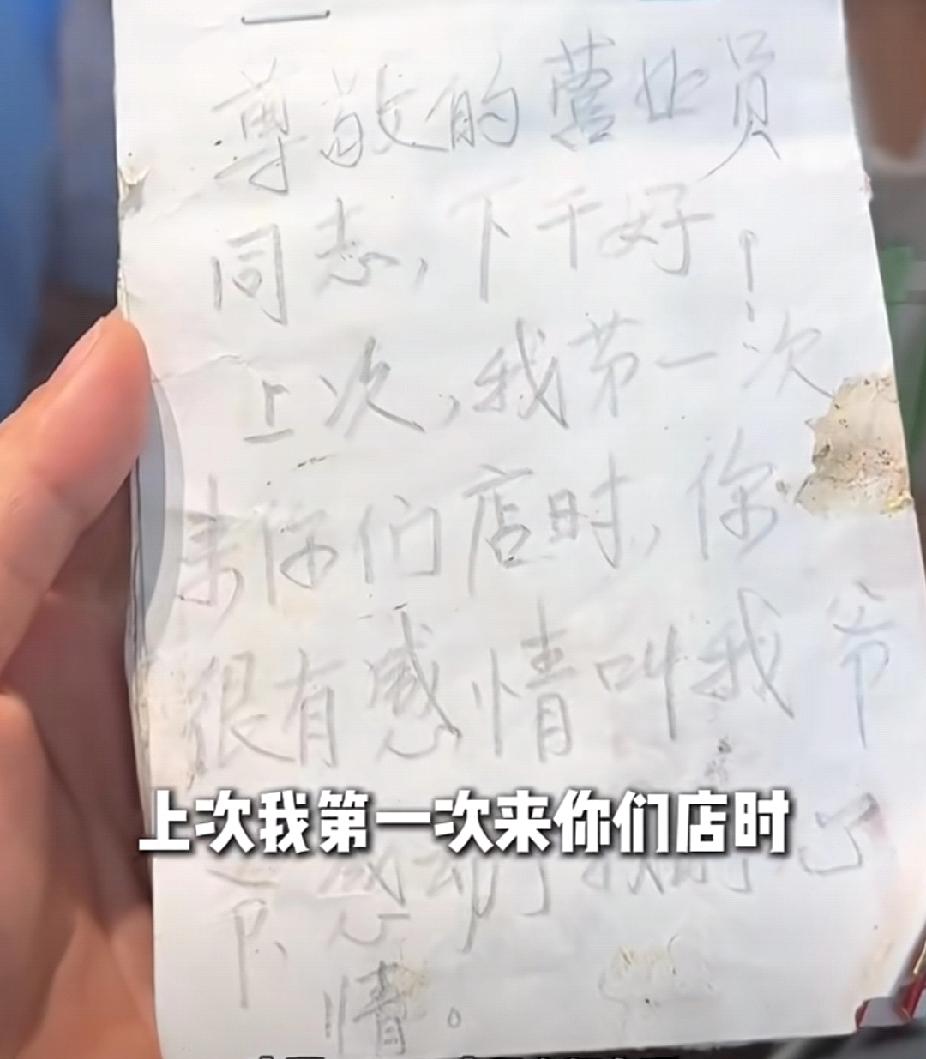 尊敬的营业员
同志，下午好！
上次，我第一次
来你们店时，你
很有感情叫我爷
上次我第一次来你们店时
爷 感动了我的心
情。